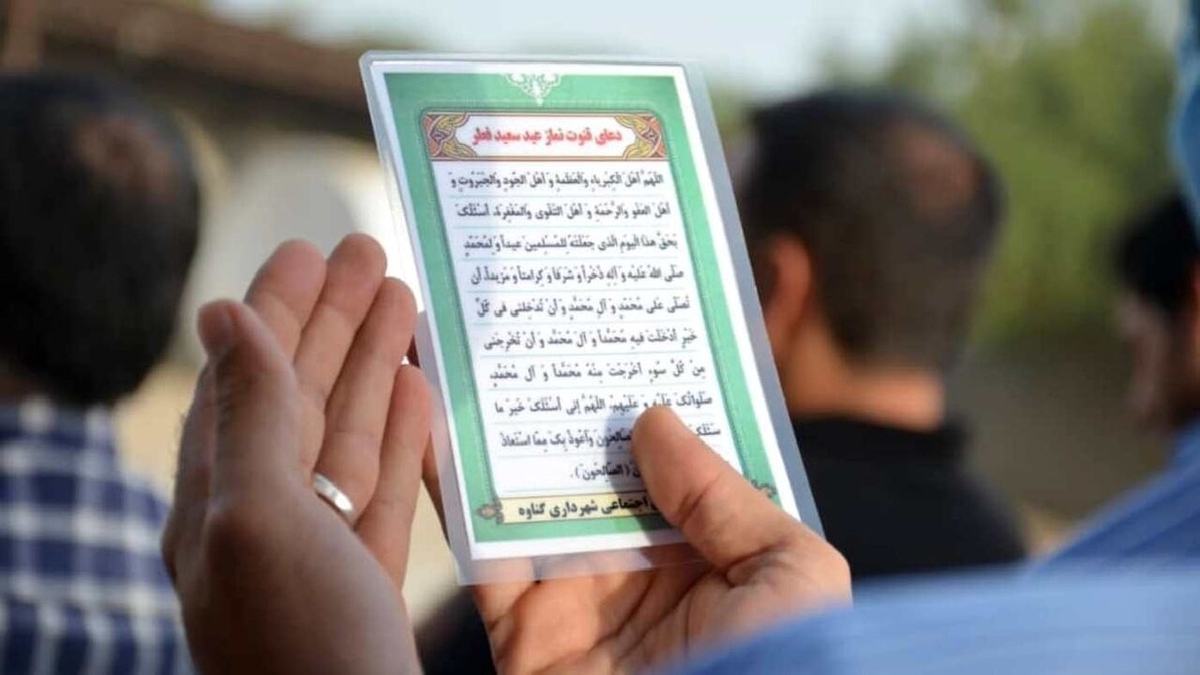 دعای قنوت نماز عید سعید فطر
اللهُمَّ اَهْلَ الْکِبْریاءِ وَالْعَظَمَةِ وَ اَهْلَ الْجُودِ وَالْجَبَرُوتِ وَ
اَهْلَ الْعَفْوِ وَالرَّحْمَةِ وَ اَهْلَ التَّقْوی وَالْمَغْفِرَةِ، اَسْئَلُکَ
بِحَقِّ هذَا الْیَومِ الَّذی جَعَلْتَهُ لِلْمُسْلِمینَ عیداً وَ لِمُحَمَّدٍ
صَلَّی اللهُ عَلَیْهِ وَ آلِهِ ذُخْراً وَ شَرَفاً وَ کِرامَتاً وَ مَزیداً، اَنْ
تُصَلِّی عَلی مُحَمَّدٍ وَ آلِ مُحَمَّدٍ وَ اَنْ تُدْخِلَنی فی کُلِّ
خَیْرٍ اَدْخَلْتَ فیهِ مُحَمَّداً وَ آلَ مُحَمَّدٍ وَ اَنْ تُخْرِجَنی
مِنْ کُلِّ سُوءٍ اَخْرَجْتَ مِنْهُ مُحَمَّداً وَ آلَ مُحَمَّدٍ،
صَلَواتُکَ عَلَیْهِ وَ عَلَیْهِمْ، اللهُمَّ اِنّی اَسْئَلُکَ خَیْرَ ما
سَئَلَکَ الصّالِحُونَ وَاَعُوذُ بِکَ مِمَّا اسْتَعاذَ
(الصّالِحُونَ).
اجتماعی شهرداری گناوه